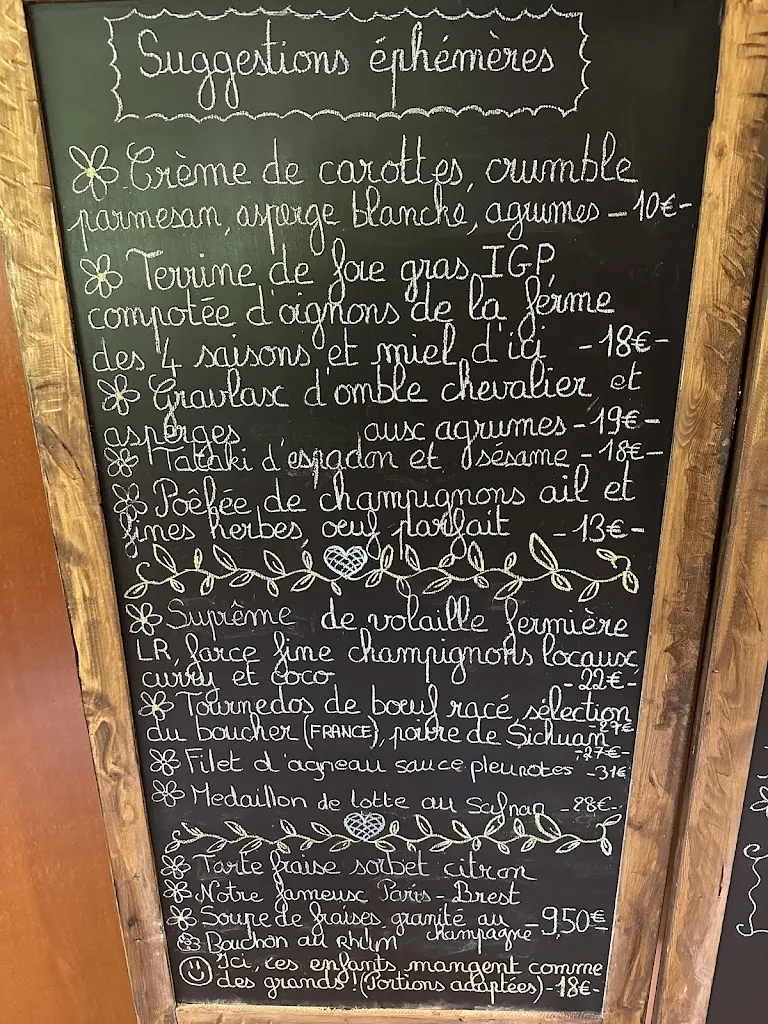 Suggestions éphémères
Crème de carottes, crumble
parmesan, asperge blanche, agrumes - 10€-
Terrine de foie gras IGP,
compotée d'oignons de la ferme
des 4 saisons et miel d'ici - 18€-
Gravlax d'omble chevalier et
asperges aux agrumes - 19€-
Tataki d'espadon et sésame - 18€-
Poêlée de champignons ail et
fines herbes, oeuf parfait - 13€-
Suprême de volaille fermière
LR, farce fine champignons locaux,
curry et coco - 22€-
Tournedos de boeuf racé, sélection
du boucher (FRANCE), poivre de Sichuan
- 27€-
Filet d'agneau sauce pleurotes - 31€
Medaillon de lotte au Safran - 28€-
Tarte fraise sorbet citron
Notre fameux Paris - Brest
Soupe de fraises granité au champagne - 9,50€
Bouchon au Rhum
Ici, ces enfants mangent comme
des grands! (Portions adaptées) - 18€-